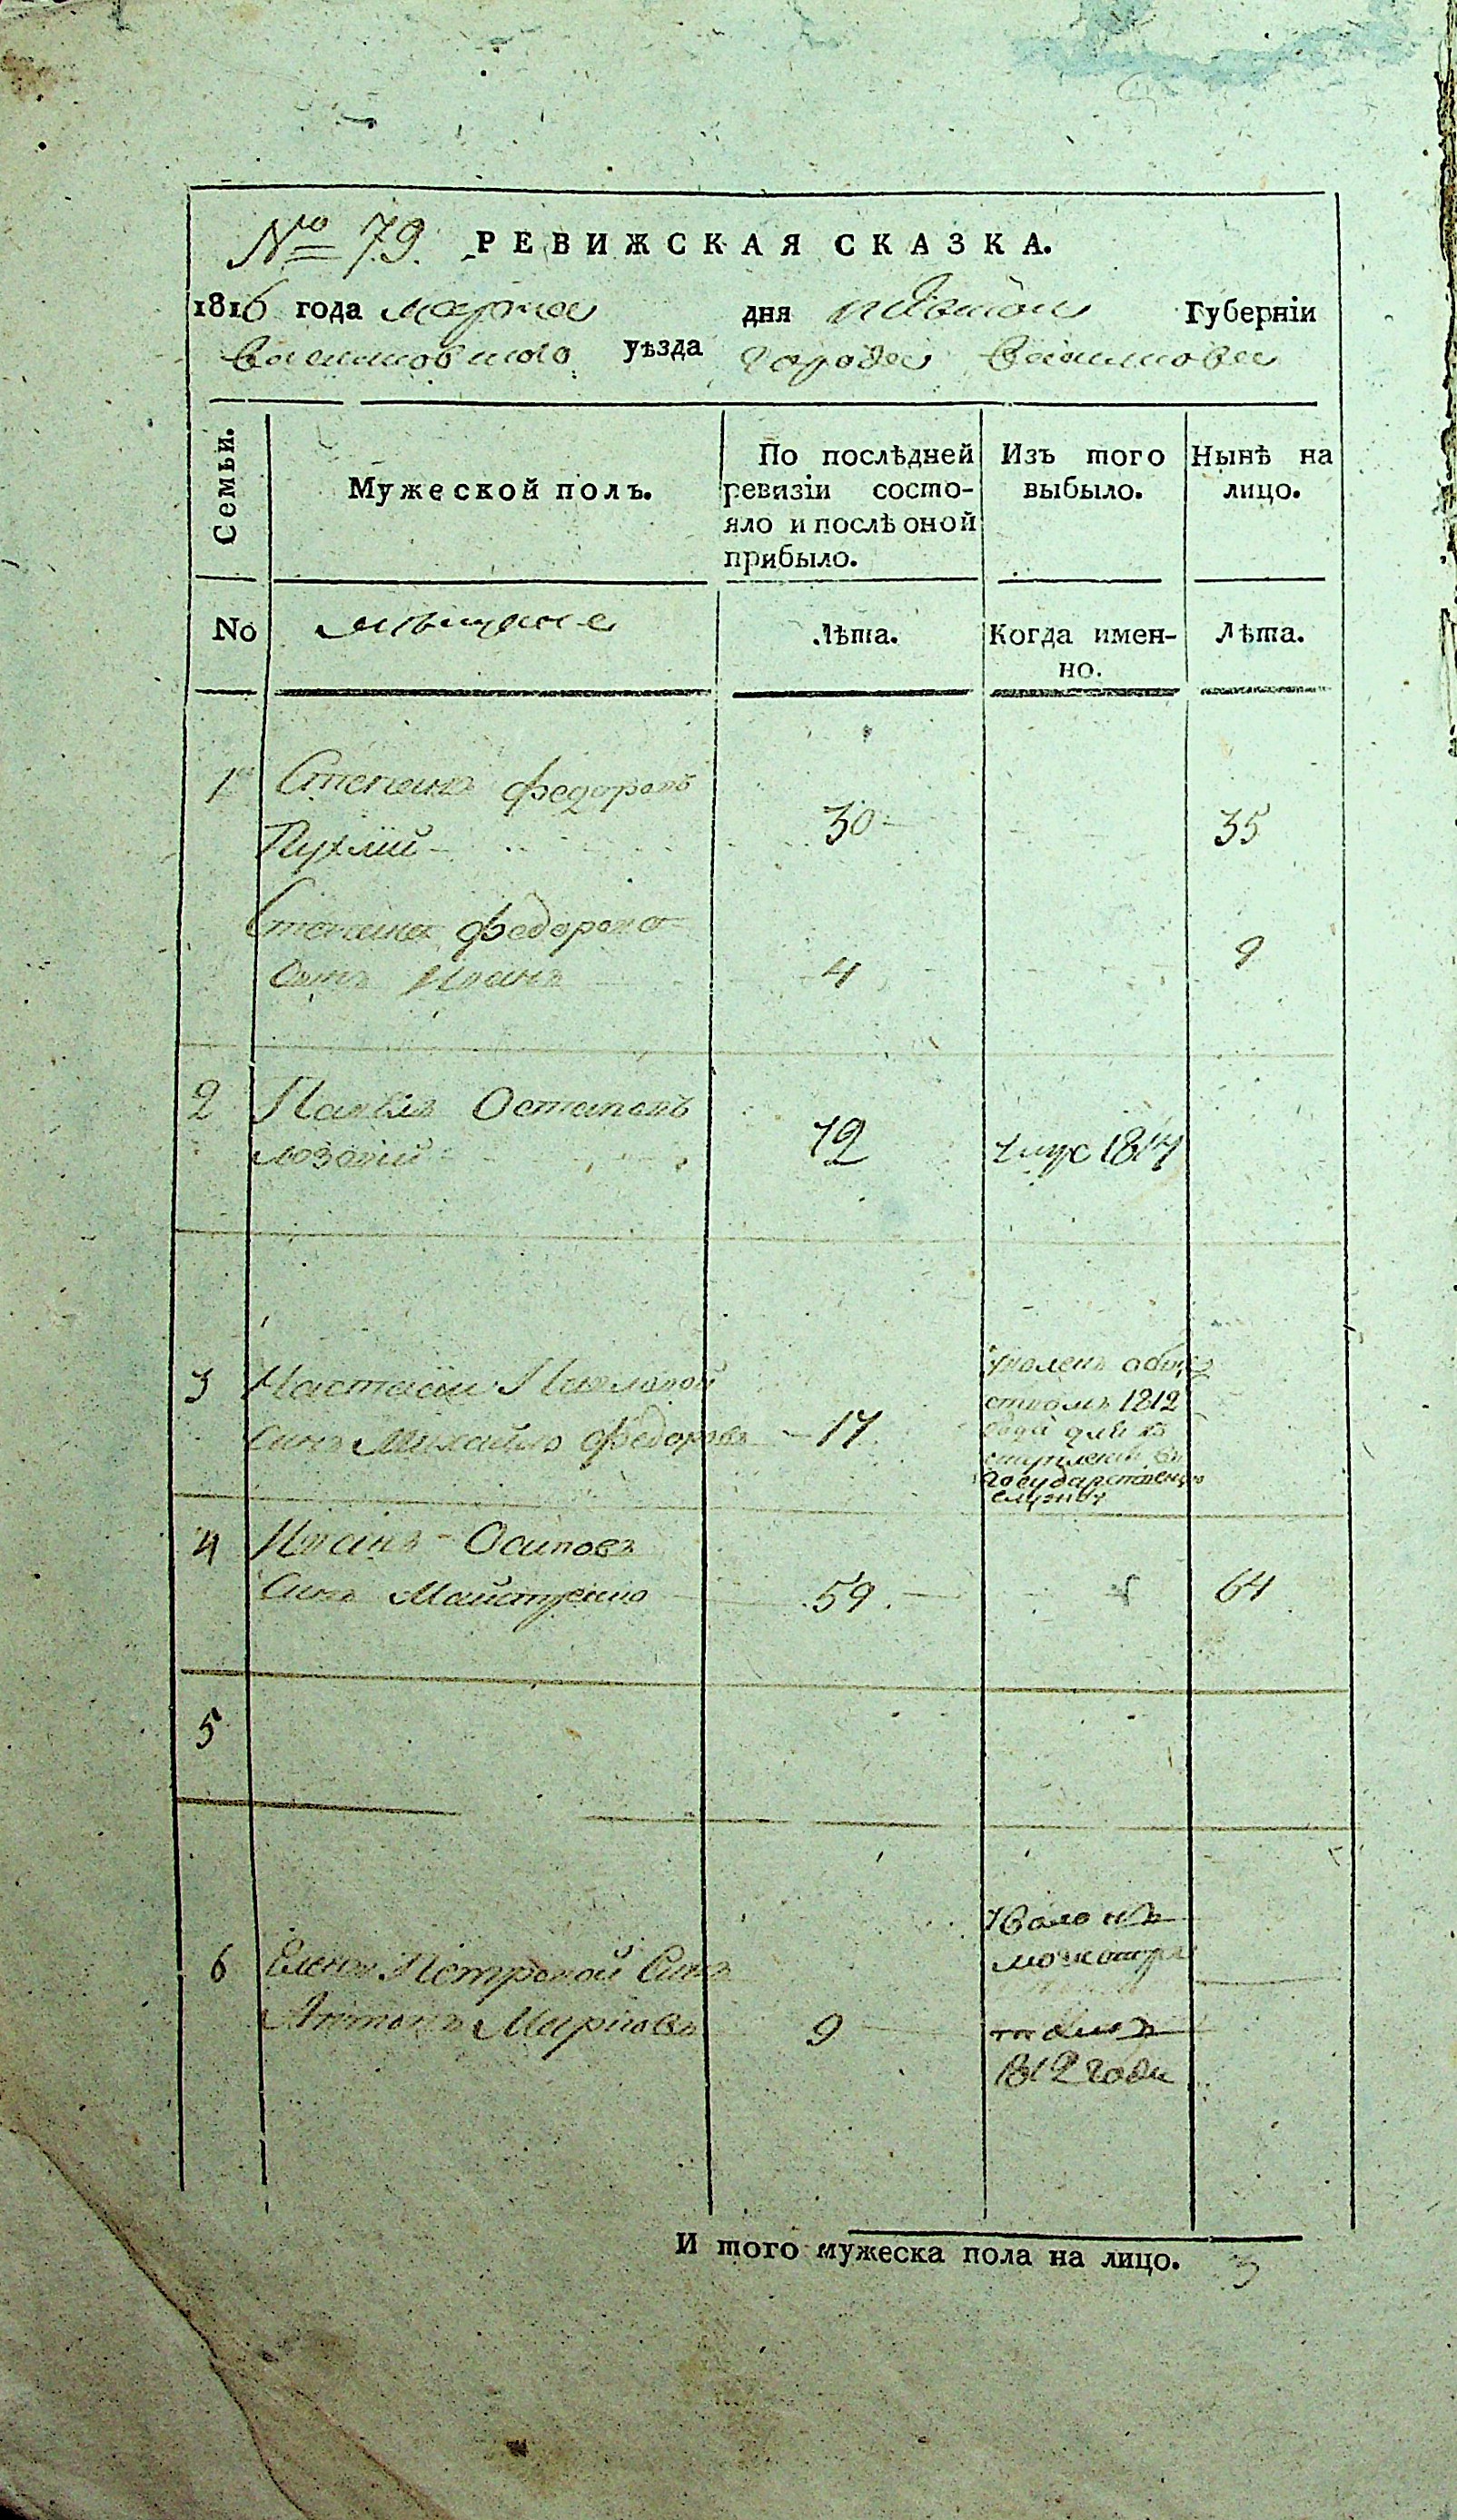 № 79. РЕВИЖСКАЯ СКАЗКА.
1816 года марта дня Губерніи
Васильковскаго уѣзда города Василькова
Семьи.
Мужеской полъ.
По послѣдней
ревизіи состо-
яло и послѣ оной
прибыло.
Изъ того
выбыло.
Нынѣ на
лицо.
No мѣщане Лѣта. Когда имен-
но. Лѣта.
1й Степанъ Федоровъ
Пухлій 30 35
Степана Федорова
Сынъ Иванъ 4 9
2 Павелъ Остаповъ
лозовій 12 1814
3 Настасіи Павловой
Синъ Михайло Федоровъ 17
уволенъ обще
ствомъ 1812
года для в
ступленія въ
государственную
службу
4 Иванъ Осиповъ
Синъ Майстренко 59 64
5
6 Елены Петровой Синъ
Антонъ Марковъ 9
812 года
И того мужеска пола на лицо. 3